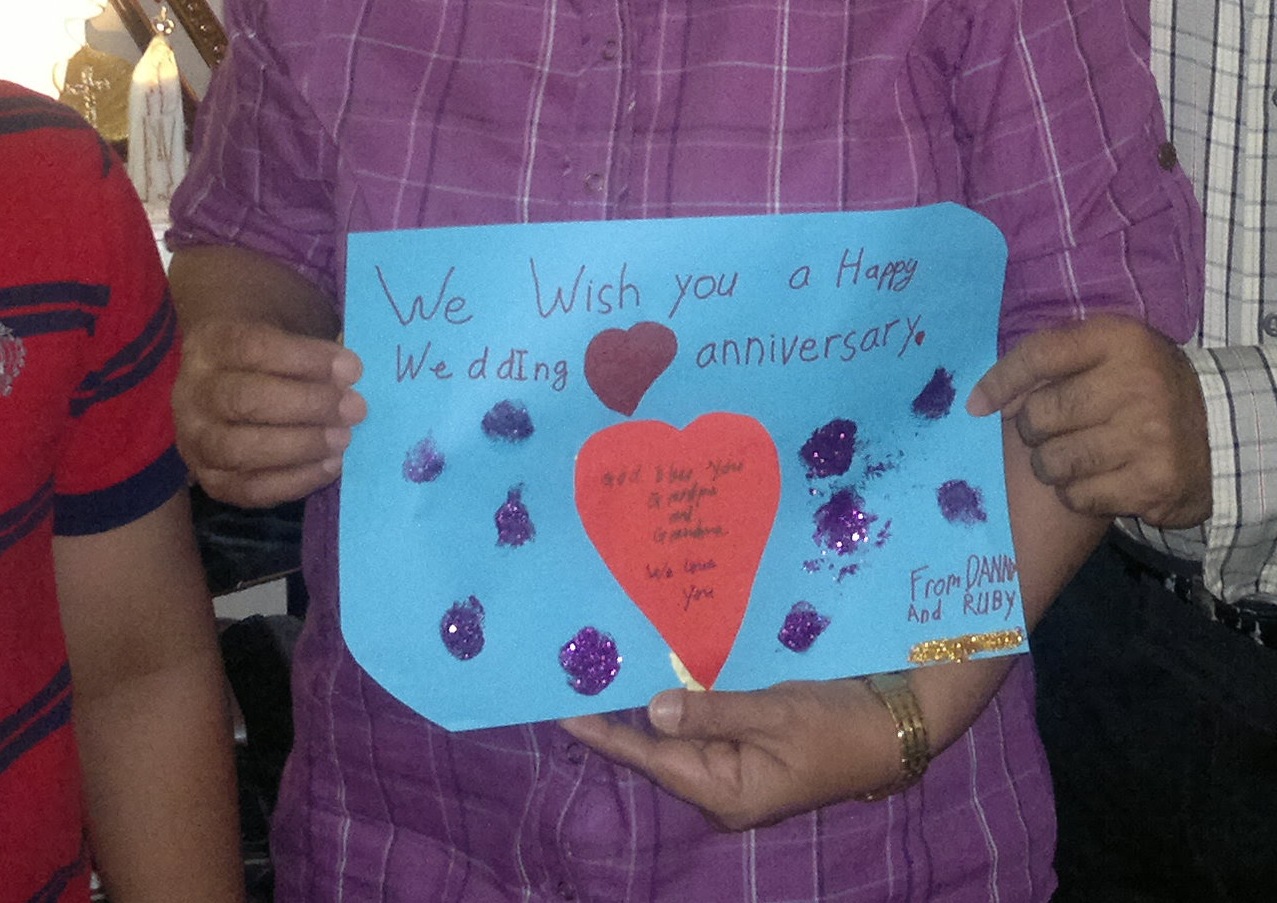 We Wish you a Happy
WeddIng anniversary.
God bless you
Grandpa
and
Grandma
We love
you
From DANNY
And RUBY